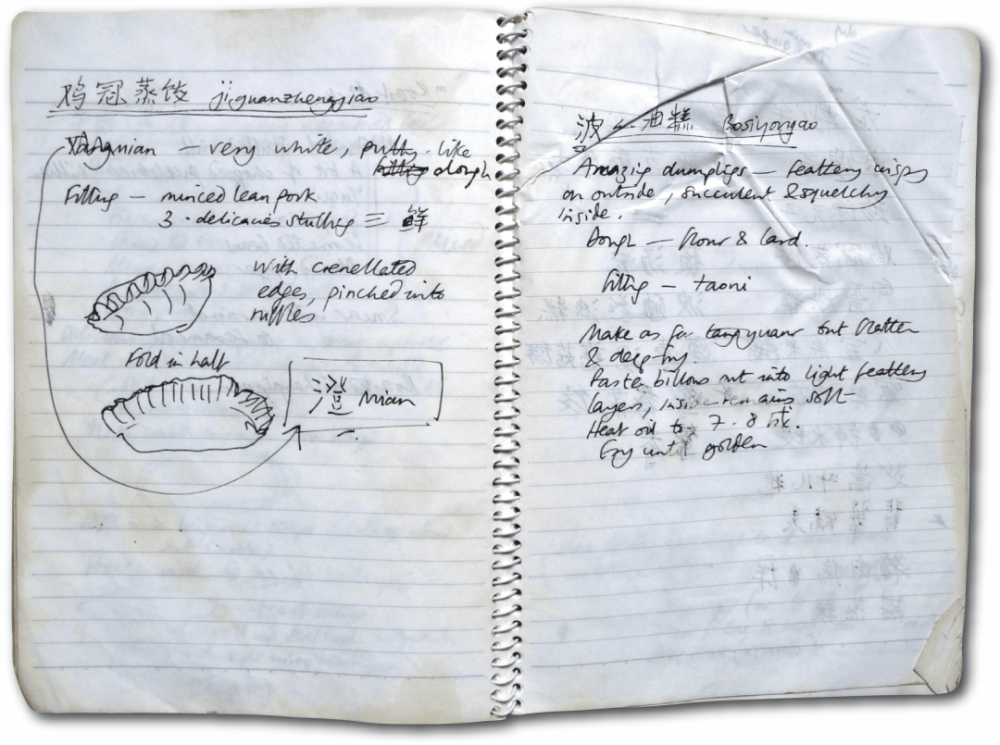 鸡冠蒸饺 jiguanzhengjiao
— very white, putty-like
dough
Filling — minced lean pork
3-delicacies stuffing 三鲜
With crenellated
edges, pinched into
ruffles
Fold in half
澄 mian
波丝油糕 Bosiyougao
Amazing dumplings — feathery crispy
on outside, succulent & squelchy
inside.
Dough — flour & lard.
filling — taoni
Make as for tangyuanr but flatten
& deep-fry.
Paster billows out into light feathery
layers, inside remains soft
Heat oil to 7-8 成.
Fry until golden